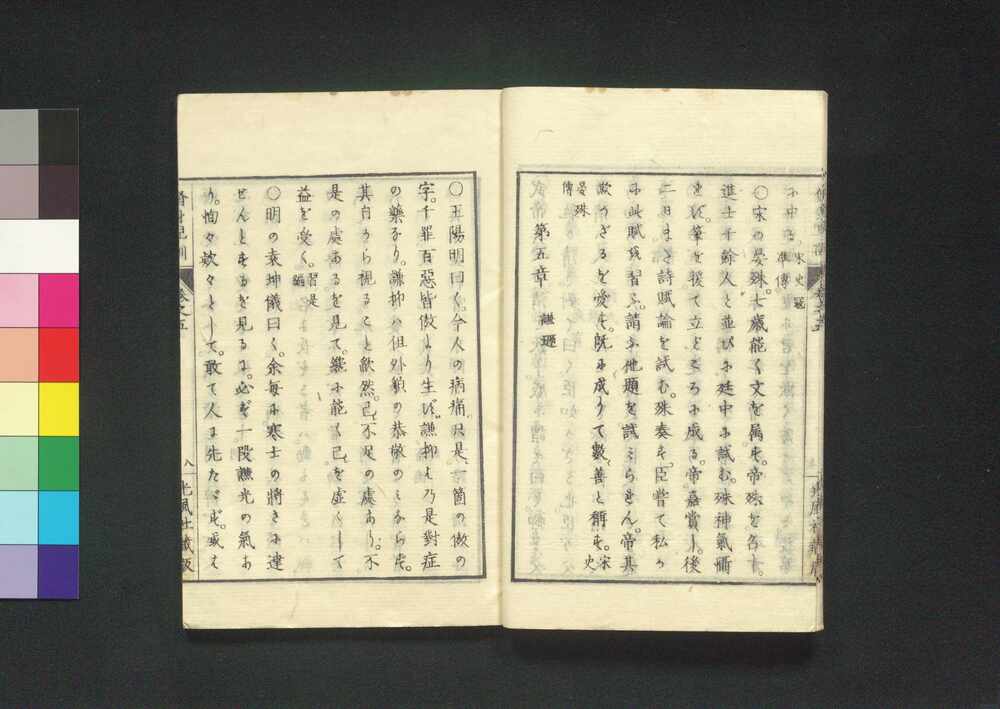 に中る。宋史寇準傳
○宋の晏殊。七歳能く文を属す。帝殊を召し。
進士千餘人と並びに廷中に試む。殊神氣懾
せず。筆を援て立どころに成る。帝。嘉賞し。後
二日また詩賦論を試む。殊奏す。臣嘗て私か
に此賦を習ふ。請ふ他題を試みられん。帝其
欺かざるを愛す。既に成りて數善と稱す。宋史
晏殊傳
第五章 謙遜
○王陽明曰く。今人の病痛。只是一箇の傲の
字。千罪百惡。皆傲より生ず。謙抑は乃是對症
の藥なり。謙抑ハ但外貌の恭敬のみならす。
其自から視ること歉然。己に不足の處あり。不
是の處あるを見て。纔に能く己を虚くして
益を受く。習是編
○明の袁坤儀曰く。余毎に寒士の將さに達
せんとするを見るに。必ず一段謙光の氣あ
り。恂々欵々として。敢て人に先たゞず。或は
修身兒訓
卷之五
八
光風社藏版